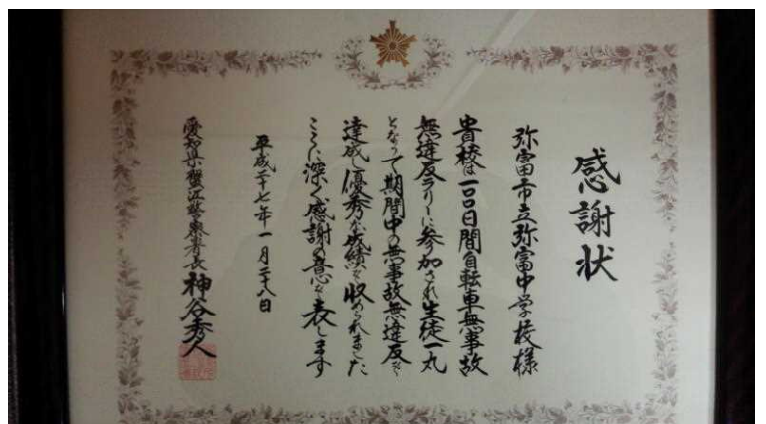 感謝状
弥富市立弥富中学校様
貴校は一〇〇日間自転車無事故
無違反ラリーに参加され生徒一丸
となって期間中の無事故無違反を
達成し優秀な成績を収められました
ここに深く感謝の意を表します
平成二十七年一月二十八日
愛知県蟹江警察署長 神谷秀人